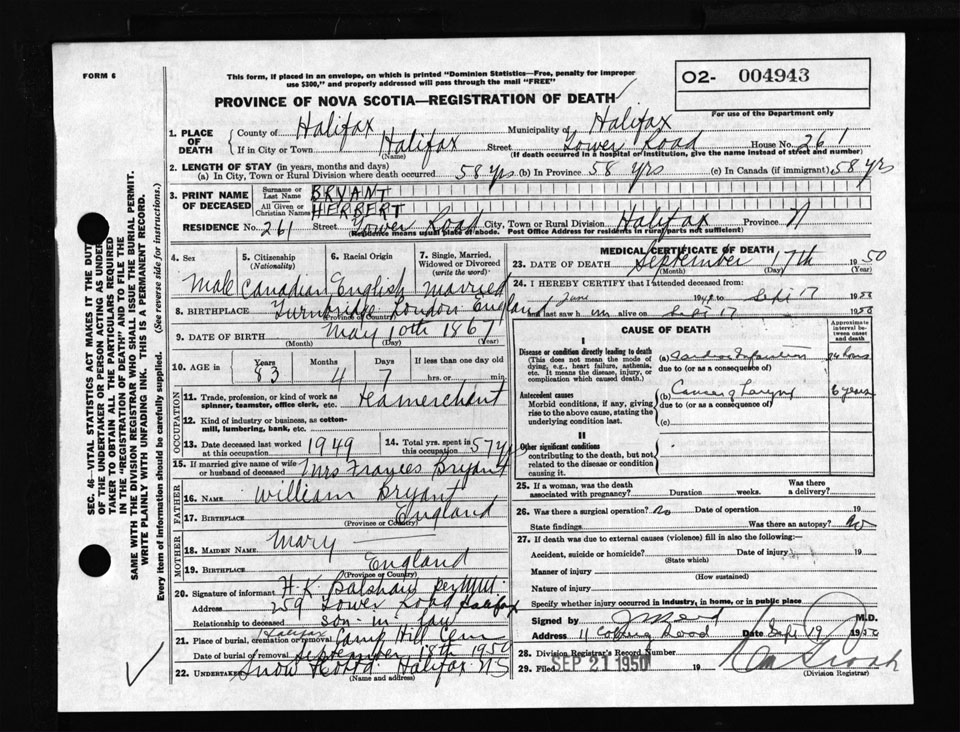 FORM 6
This form, if placed in an envelope, on which is printed "Dominion Statistics—Free, penalty for improper
use $300," and properly addressed will pass through the mail "FREE"
O2- 004943
For use of the Department only
PROVINCE OF NOVA SCOTIA—REGISTRATION OF DEATH
1. PLACE OF DEATH
County of Halifax Municipality of Halifax
If in City or Town Halifax Street Tower Road House No. 261
(Name) (If death occurred in a hospital or institution, give the name instead of street and number)
2. LENGTH OF STAY (in years, months and days)
(a) In City, Town or Rural Division where death occurred 58 yrs (b) In Province 58 yrs (c) In Canada (if immigrant) 58 yrs
3. PRINT NAME OF DECEASED
Surname or Last Name BRYANT
All Given or Christian Names HERBERT
RESIDENCE No. 261 Street Tower Road City, Town or Rural Division Halifax Province N
(Residence means usual place of abode. Post Office Address for residents in rural parts not sufficient)
4. Sex Male
5. Citizenship (Nationality) Canadian
6. Racial Origin English
7. Single, Married, Widowed or Divorced (write the word) Married
8. BIRTHPLACE Turnbridge London England
(Province or Country)
9. DATE OF BIRTH May 10th 1867
(Month) (Day) (Year)
10. AGE in Years 83 Months 4 Days 7 If less than one day old
hrs. or min.
OCCUPATION
11. Trade, profession, or kind of work as
spinner, teamster, office clerk, etc. Teamerchant
12. Kind of industry or business, as cotton-
mill, lumbering, bank, etc.
13. Date deceased last worked
at this occupation 1949
14. Total yrs. spent in
this occupation 57 yrs
15. If married give name of wife
or husband of deceased Mrs Frances Bryant
FATHER
16. Name William Bryant
17. Birthplace England
(Province or Country)
MOTHER
18. Maiden Name Mary
19. Birthplace England
(Province or Country)
20. Signature of informant H. K. Balshaw per
Address 259 Tower Road Halifax
Relationship to deceased son-in-law
21. Place of burial, cremation or removal Halifax Camp Hill Cem
Date of burial or removal September 18th 1950
22. Undertaker Snow Halifax NS
(Name and address)
MEDICAL CERTIFICATE OF DEATH
23. DATE OF DEATH September 17th 1950
(Month) (Day) (Year)
24. I HEREBY CERTIFY that I attended deceased from:
June to Sept 17 1950
I last saw h im alive on Sept 17 1950
CAUSE OF DEATH
Approximate interval between onset and death
I
Disease or condition directly leading to death
(This does not mean the mode of
dying, e.g., heart failure, asthenia,
etc. It means the disease, injury, or
complication which caused death.)
(a) Cardiac Infarction 24 hours
due to (or as a consequence of)
Antecedent causes
Morbid conditions, if any, giving
rise to the above cause, stating the
underlying condition last.
(b) Cancer of Larynx 6 years
due to (or as a consequence of)
(c)
II
Other significant conditions
contributing to the death, but not
related to the disease or condition
causing it.
25. If a woman, was the death
associated with pregnancy? Duration weeks. Was there a delivery?
26. Was there a surgical operation? No Date of operation 19
State findings Was there an autopsy? No
27. If death was due to external causes (violence) fill in also the following:—
Accident, suicide or homicide? Date of injury 19
(State which)
Manner of injury
(How sustained)
Nature of injury
Specify whether injury occurred in industry, in home, or in public place
Signed by M.D.
Address 11 Coburg Road Date Sept 19 1950
28. Division Registrar's Record Number
29. Filed SEP 21 1950 19
(Division Registrar)
SEC. 46—VITAL STATISTICS ACT MAKES IT THE DUTY
OF THE UNDERTAKER OR PERSON ACTING AS UNDER-
TAKER TO OBTAIN ALL THE PARTICULARS REQUIRED
IN THE "REGISTRATION OF DEATH" AND TO FILE THE
SAME WITH THE DIVISION REGISTRAR WHO SHALL ISSUE THE BURIAL PERMIT.
WRITE PLAINLY WITH UNFADING INK. THIS IS A PERMANENT RECORD.
Every item of information should be carefully supplied. (See reverse side for instructions.)